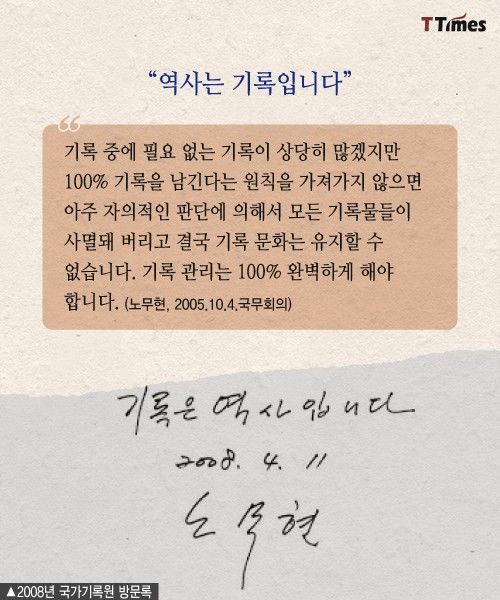 TTimes
“역사는 기록입니다”
기록 중에 필요 없는 기록이 상당히 많겠지만
100% 기록을 남긴다는 원칙을 가져가지 않으면
아주 자의적인 판단에 의해서 모든 기록물들이
사멸돼 버리고 결국 기록 문화는 유지할 수
없습니다. 기록 관리는 100% 완벽하게 해야
합니다. (노무현, 2005.10.4.국무회의)
기록은 역사입니다
2008. 4. 11
노무현
▲2008년 국가기록원 방문록